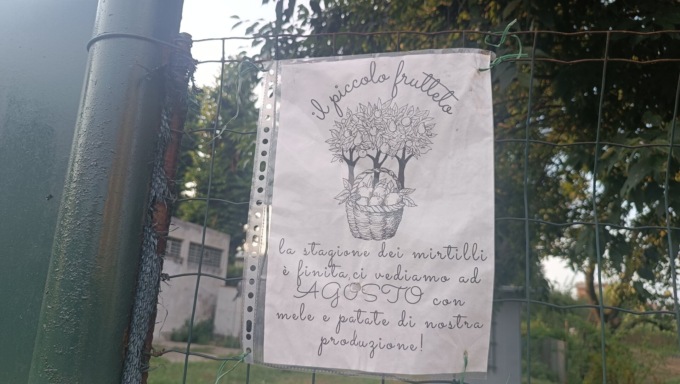 il piccolo frutteto
la stagione dei mirtilli
è finita, ci vediamo ad
AGOSTO con
mele e patate di nostra
produzione!